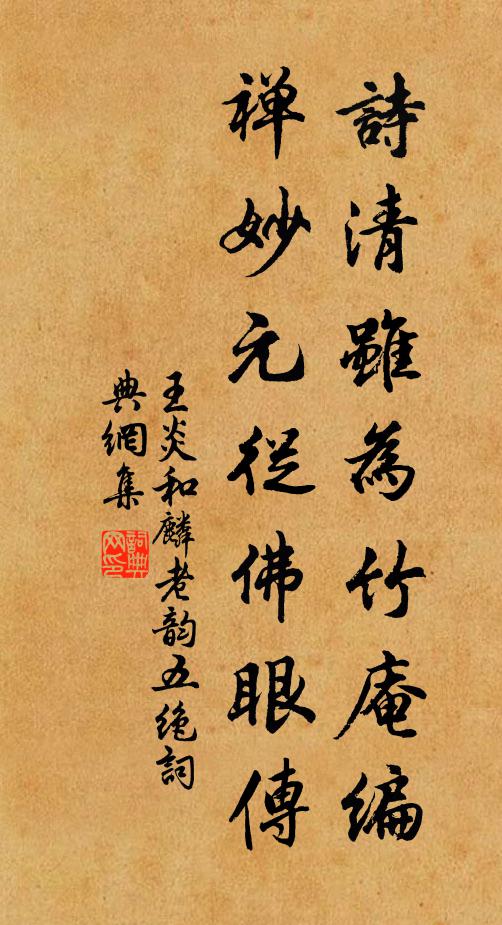 詩清雖為竹庵編
禅妙元從佛眼傳
王炎和麟老韵五绝詞
典網集
詞典网印